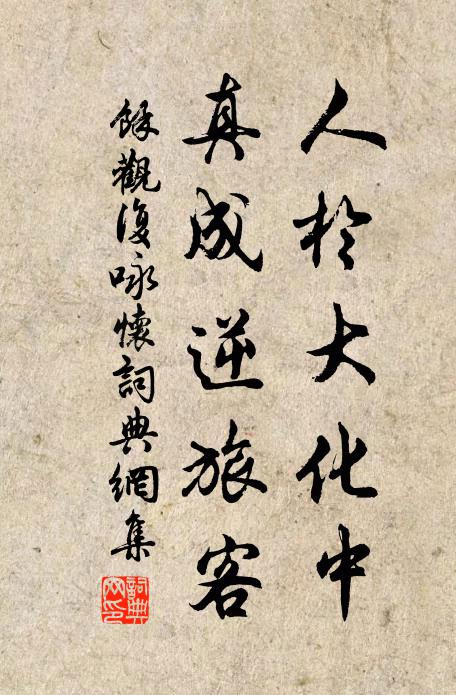 人於大化中
真成逆旅客
餘觀復咏懷詞典網集
詞典
文印